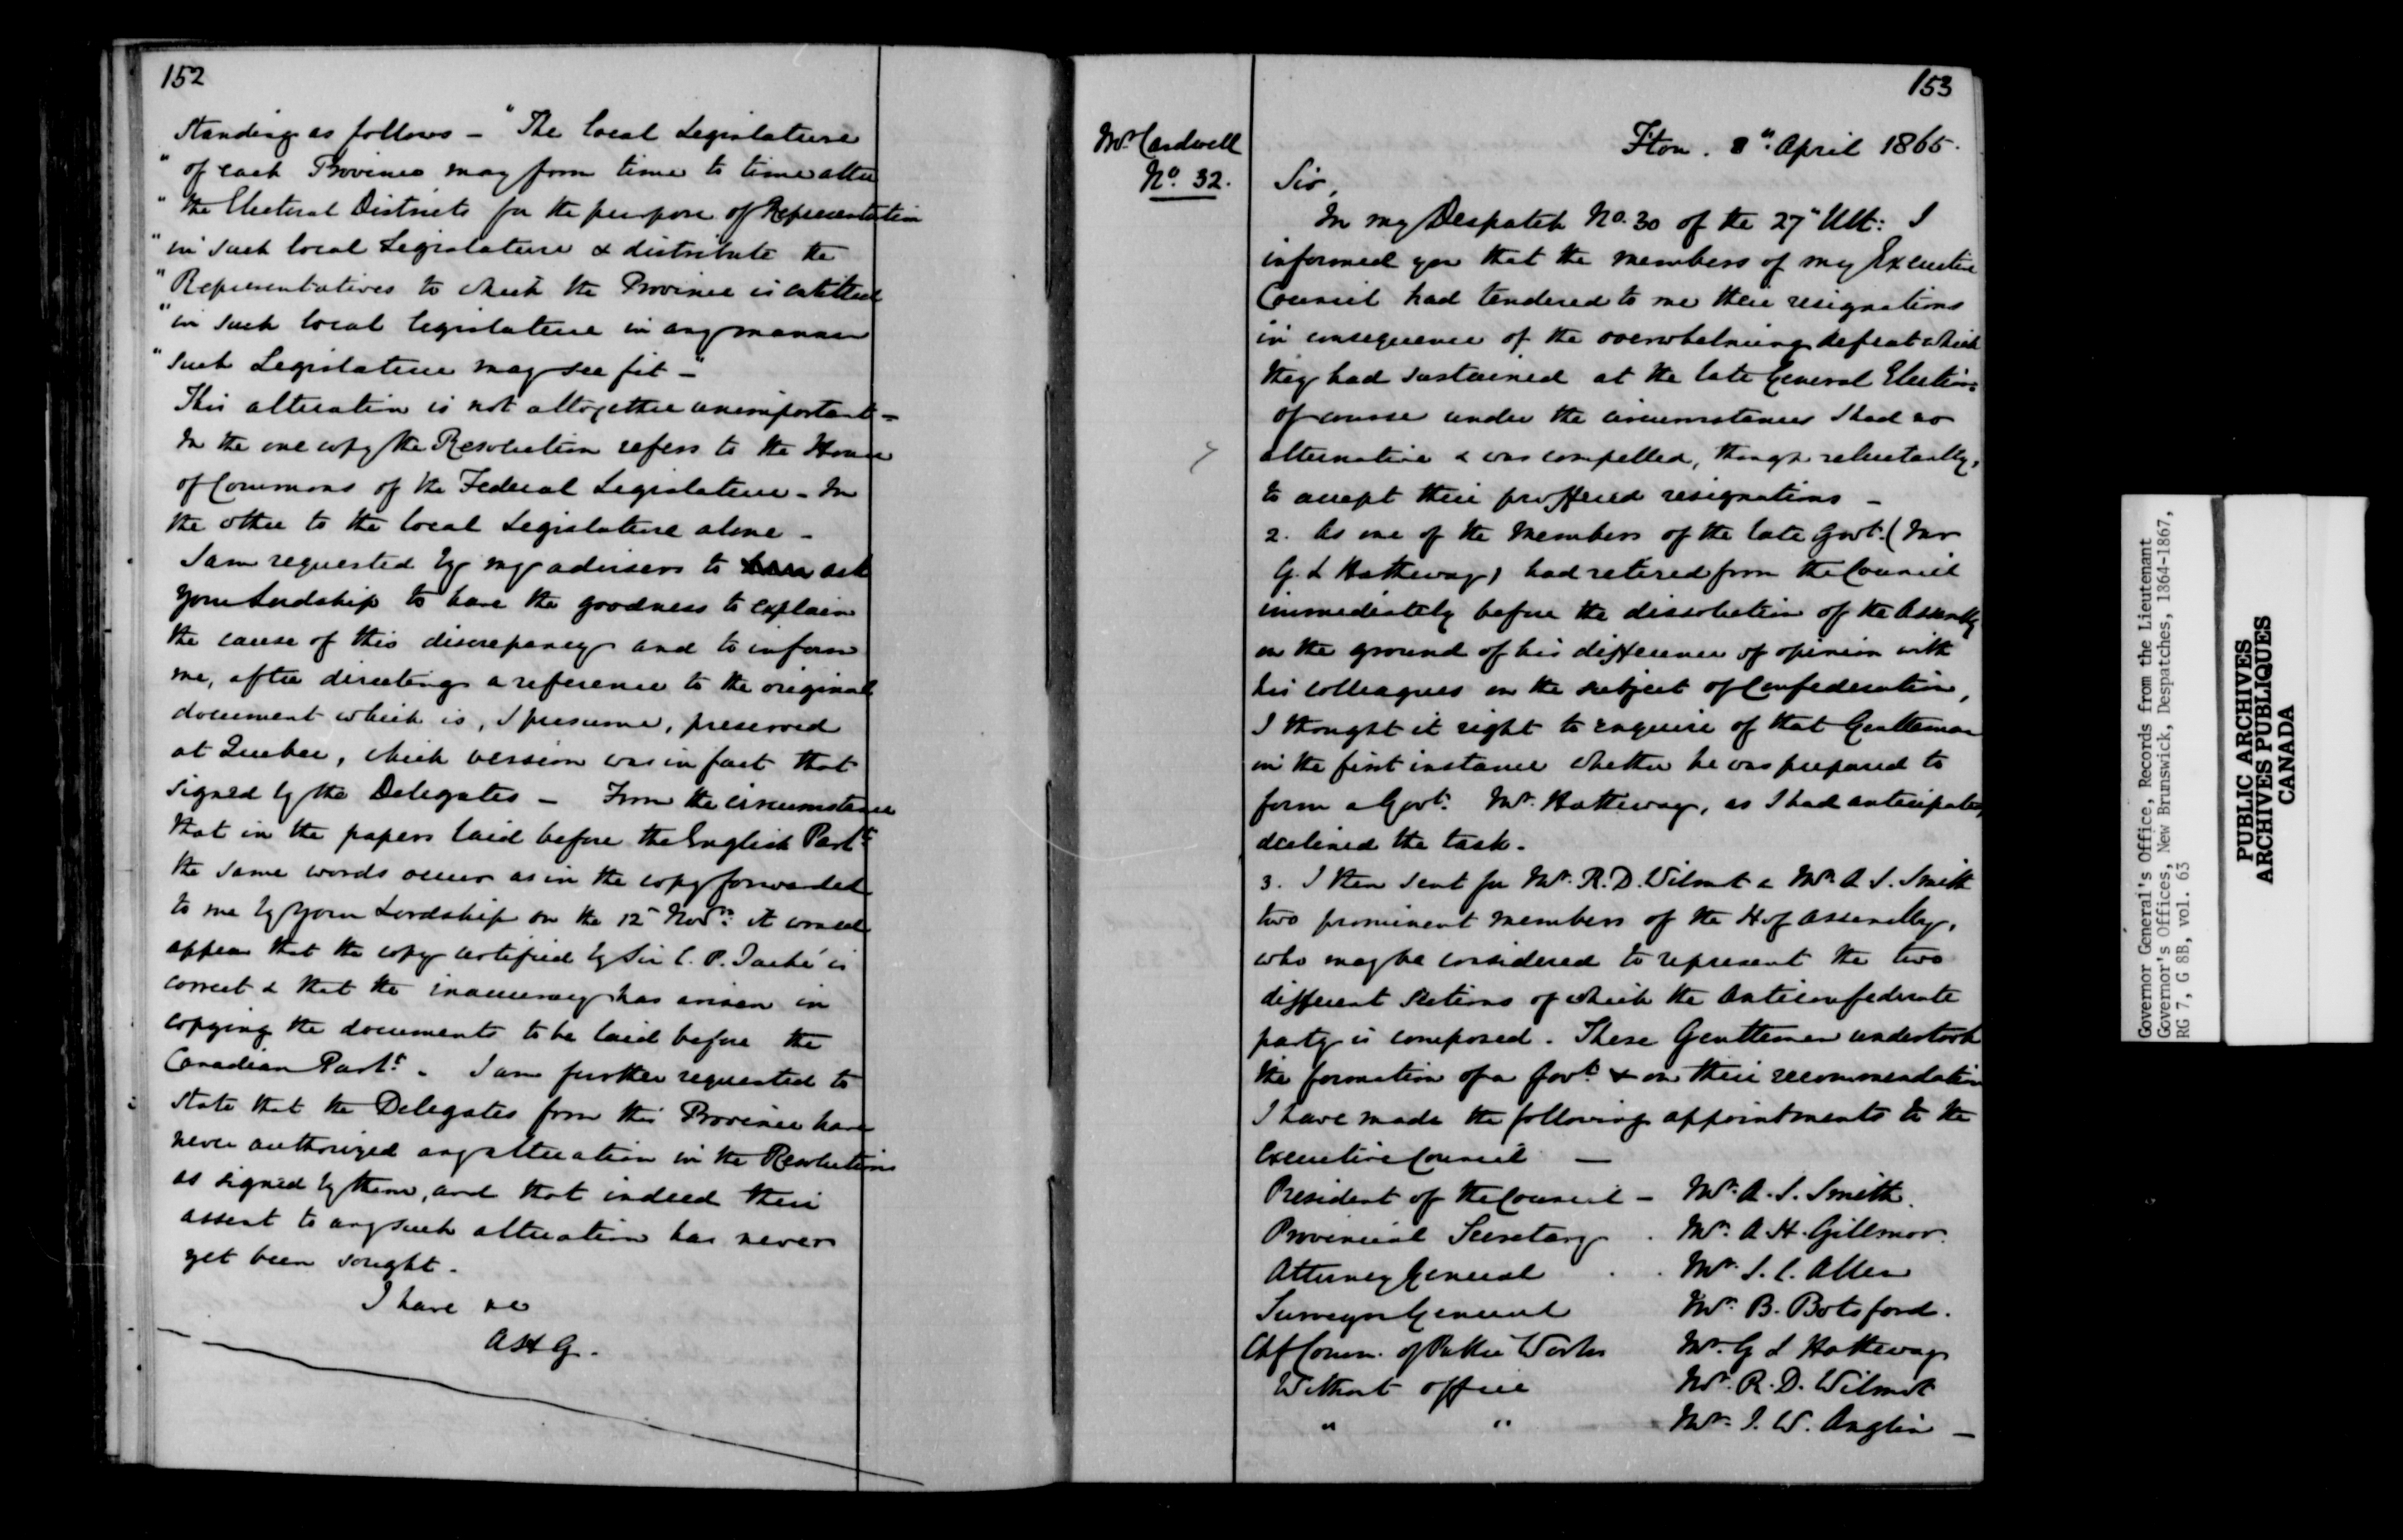 152
standing as follows – "The local Legislature
" of each Province may from time to time alter
" the Electoral Districts for the purpose of Representation
" in such local Legislature & distribute the
" Representatives to which the Province is entitled
" in such local legislature in any manner
" such Legislature may see fit – "
This alteration is not altogether unimportant –
In the one copy the Resolution refers to the House
of Commons of the Federal Legislature – In
the other to the local Legislature alone –
I am requested by my advisers to ask
Your Lordship to have the goodness to explain
the cause of this discrepancy and to inform
me, after directing a reference to the original
document which is, I presume, preserved
at Quebec, which version was in fact that
signed by the Delegates – From the circumstance
that in the papers laid before the English Parlt
the same words occur as in the copy forwarded
to me by Your Lordship on the 12" Novr. it would
appear that the copy certified by Sir E. P. Taché is
correct & that the inaccuracy has arisen in
copying the documents to be laid before the
Canadian Parlt. – I am further requested to
state that the Delegates from this Province have
never authorized any alteration in the Resolutions
as signed by them, and that indeed their
assent to any such alteration has never
yet been sought –
I have &c
A H G.
153
Mr. Cardwell
No. 32.
Fton. 8" April 1865.
Sir,
In my Despatch No. 30 of the 27" Ult: I
informed you that the members of my Executive
Council had tendered to me their resignations
in consequence of the overwhelming defeat which
they had sustained at the late General Election:
of course under the circumstances I had no
alternative & was compelled, though reluctantly,
to accept their proffered resignations –
2. As one of the Members of the late Govt. (Mr
G. L Hatheway) had retired from the Council
immediately before the dissolution of the Assembly
on the ground of his difference of opinion with
his colleagues on the subject of Confederation,
I thought it right to enquire of that Gentleman
in the first instance whether he was prepared to
form a Govt. Mr. Hatheway, as I had anticipated,
declined the task –
3. I then sent for Mr. R. D. Wilmot & Mr. A. J. Smith
two prominent members of the H of Assembly,
who may be considered to represent the two
different sections of which the Anticonfederate
party is composed. These Gentlemen undertook
the formation of a Govt. & on their recommendation
I have made the following appointments to the
Executive Council –
President of the Council – Mr. A. J. Smith.
Provincial Secretary . Mr. A. H. Gillmor.
Attorney General . . Mr. J. C. Allen
Surveyor General Mr. B. Botsford.
Chf Comm. of Public Works Mr. G L Hatheway
Without office Mr. R. D. Wilmot
" " Mr. T. W. Anglin –
Governor General's Office, Records from the Lieutenant
Governor's Offices, New Brunswick, Despatches, 1864-1867,
RG 7, G 8B, vol. 63
PUBLIC ARCHIVES
ARCHIVES PUBLIQUES
CANADA